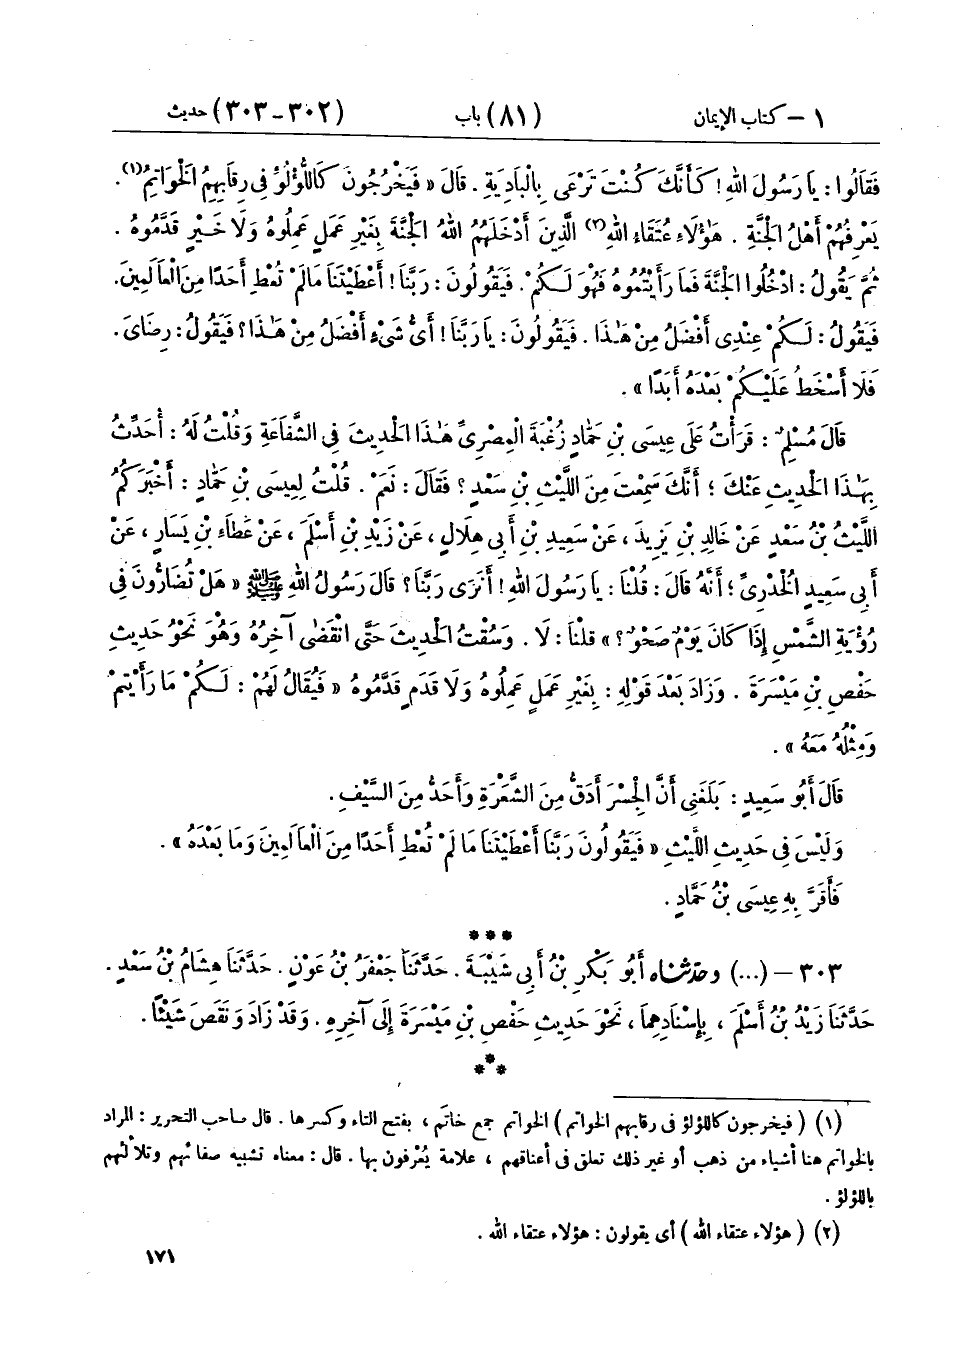 ١ – كتاب الإيمان (٨١) باب (٣٠٢-٣٠٣) حديث
فَقَالُوا : يَا رَسُولَ اللهِ! كَأَنَّكَ كُنْتَ تَرْعَى بِالْبَادِيَةِ . قَالَ « فَيَخْرُجُونَ كَاللُّؤْلُؤِ فِى رِقَابِهِمُ الْخَوَاتِمُ(١) .
يَعْرِفُهُمْ أَهْلُ الْجَنَّةِ . هَٰؤُلَاءِ عُتَقَاءُ اللهِ(٢) الَّذِينَ أَدْخَلَهُمُ اللهُ الْجَنَّةَ بِغَيْرِ عَمَلٍ عَمِلُوهُ وَلَا خَيْرٍ قَدَّمُوهُ .
ثُمَّ يَقُولُ : ادْخُلُوا الْجَنَّةَ فَمَا رَأَيْتُمُوهُ فَهُوَ لَكُمْ . فَيَقُولُونَ : رَبَّنَا! أَعْطَيْتَنَا مَالَمْ تُعْطِ أَحَدًا مِنَ الْعَالَمِينَ .
فَيَقُولُ : لَكُمْ عِنْدِى أَفْضَلُ مِنْ هَٰذَا . فَيَقُولُونَ : يَا رَبَّنَا! أَىُّ شَىْءٍ أَفْضَلُ مِنْ هَٰذَا؟ فَيَقُولُ : رِضَاىَ .
فَلَا أَسْخَطُ عَلَيْكُمْ بَعْدَهُ أَبَدًا » .
قَالَ مُسْلِمٌ : قَرَأْتُ عَلَى عِيسَى بْنِ حَمَّادٍ زُغْبَةَ الْمِصْرِىِّ هَٰذَا الْحَدِيثَ فِى الشَّفَاعَةِ وَقُلْتُ لَهُ : أُحَدِّثُ
بِهَٰذَا الْحَدِيثِ عَنْكَ ؛ أَنَّكَ سَمِعْتَ مِنَ اللَّيْثِ بْنِ سَعْدٍ ؟ فَقَالَ : نَعَمْ . قُلْتُ لِعِيسَى بْنِ حَمَّادٍ : أَخْبَرَكُمُ
اللَّيْثُ بْنُ سَعْدٍ عَنْ خَالِدِ بْنِ يَزِيدَ ، عَنْ سَعِيدِ بْنِ أَبِى هِلَالٍ ، عَنْ زَيْدِ بْنِ أَسْلَمَ ، عَنْ عَطَاءِ بْنِ يَسَارٍ ، عَنْ
أَبِى سَعِيدٍ الْخُدْرِىِّ ؛ أَنَّهُ قَالَ : قُلْنَا : يَا رَسُولَ اللهِ ! أَنَرَى رَبَّنَا؟ قَالَ رَسُولُ اللهِ ﷺ « هَلْ تُضَارُّونَ فِى
رُؤْيَةِ الشَّمْسِ إِذَا كَانَ يَوْمٌ صَحْوٌ ؟ » قُلْنَا : لَا . وَسُقْتُ الْحَدِيثَ حَتَّى انْقَضَى آخِرُهُ وَهُوَ نَحْوُ حَدِيثِ
حَفْصِ بْنِ مَيْسَرَةَ . وَزَادَ بَعْدَ قَوْلِهِ : بِغَيْرِ عَمَلٍ عَمِلُوهُ وَلَا قَدَمٍ قَدَّمُوهُ « فَيُقَالُ لَهُمْ : لَكُمْ مَا رَأَيْتُمْ
وَمِثْلُهُ مَعَهُ » .
قَالَ أَبُو سَعِيدٍ : بَلَغَنِى أَنَّ الْجِسْرَ أَدَقُّ مِنَ الشَّعْرَةِ وَأَحَدُّ مِنَ السَّيْفِ .
وَلَيْسَ فِى حَدِيثِ اللَّيْثِ « فَيَقُولُونَ رَبَّنَا أَعْطَيْتَنَا مَا لَمْ تُعْطِ أَحَدًا مِنَ الْعَالَمِينَ وَمَا بَعْدَهُ » .
فَأَقَرَّ بِهِ عِيسَى بْنُ حَمَّادٍ .
***
٣٠٣ – (...) وحدثناه أَبُو بَكْرِ بْنُ أَبِى شَيْبَةَ . حَدَّثَنَا جَعْفَرُ بْنُ عَوْنٍ . حَدَّثَنَا هِشَامُ بْنُ سَعْدٍ .
حَدَّثَنَا زَيْدُ بْنُ أَسْلَمَ ، بِإِسْنَادِهِمَا ، نَحْوَ حَدِيثِ حَفْصِ بْنِ مَيْسَرَةَ إِلَى آخِرِهِ . وَقَدْ زَادَ وَنَقَصَ شَيْئًا .
***
(١) ( فيخرجون كاللؤلؤ فى رقابهم الخواتم ) الخواتم جمع خاتَم ، بفتح التاء وكسرها . قال صاحب التحرير : المراد
بالخواتم هنا أشياء من ذهب أو غير ذلك تعلق فى أعناقهم ، علامة يُعْرفون بها . قال : معناه تشبيه صفائهم وتلألئهم
باللؤلؤ .
(٢) ( هؤلاء عتقاء الله ) أى يقولون : هؤلاء عتقاء الله .
١٧١